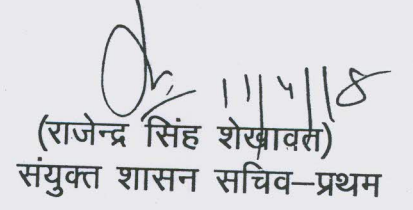 11/4/18
(राजेन्द्र सिंह शेखावत)
संयुक्त शासन सचिव–प्रथम